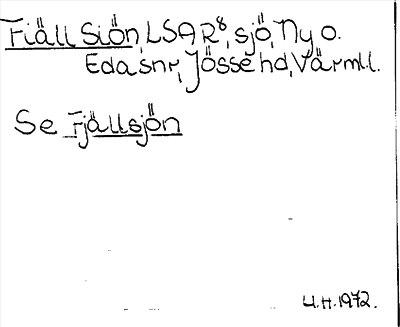 Fiäll Siön, LSA R⁸, sjö, Ny o.
Eda snr, Jösse hd, Värml.l.
Se Fjällsjön
U.H. 1972.